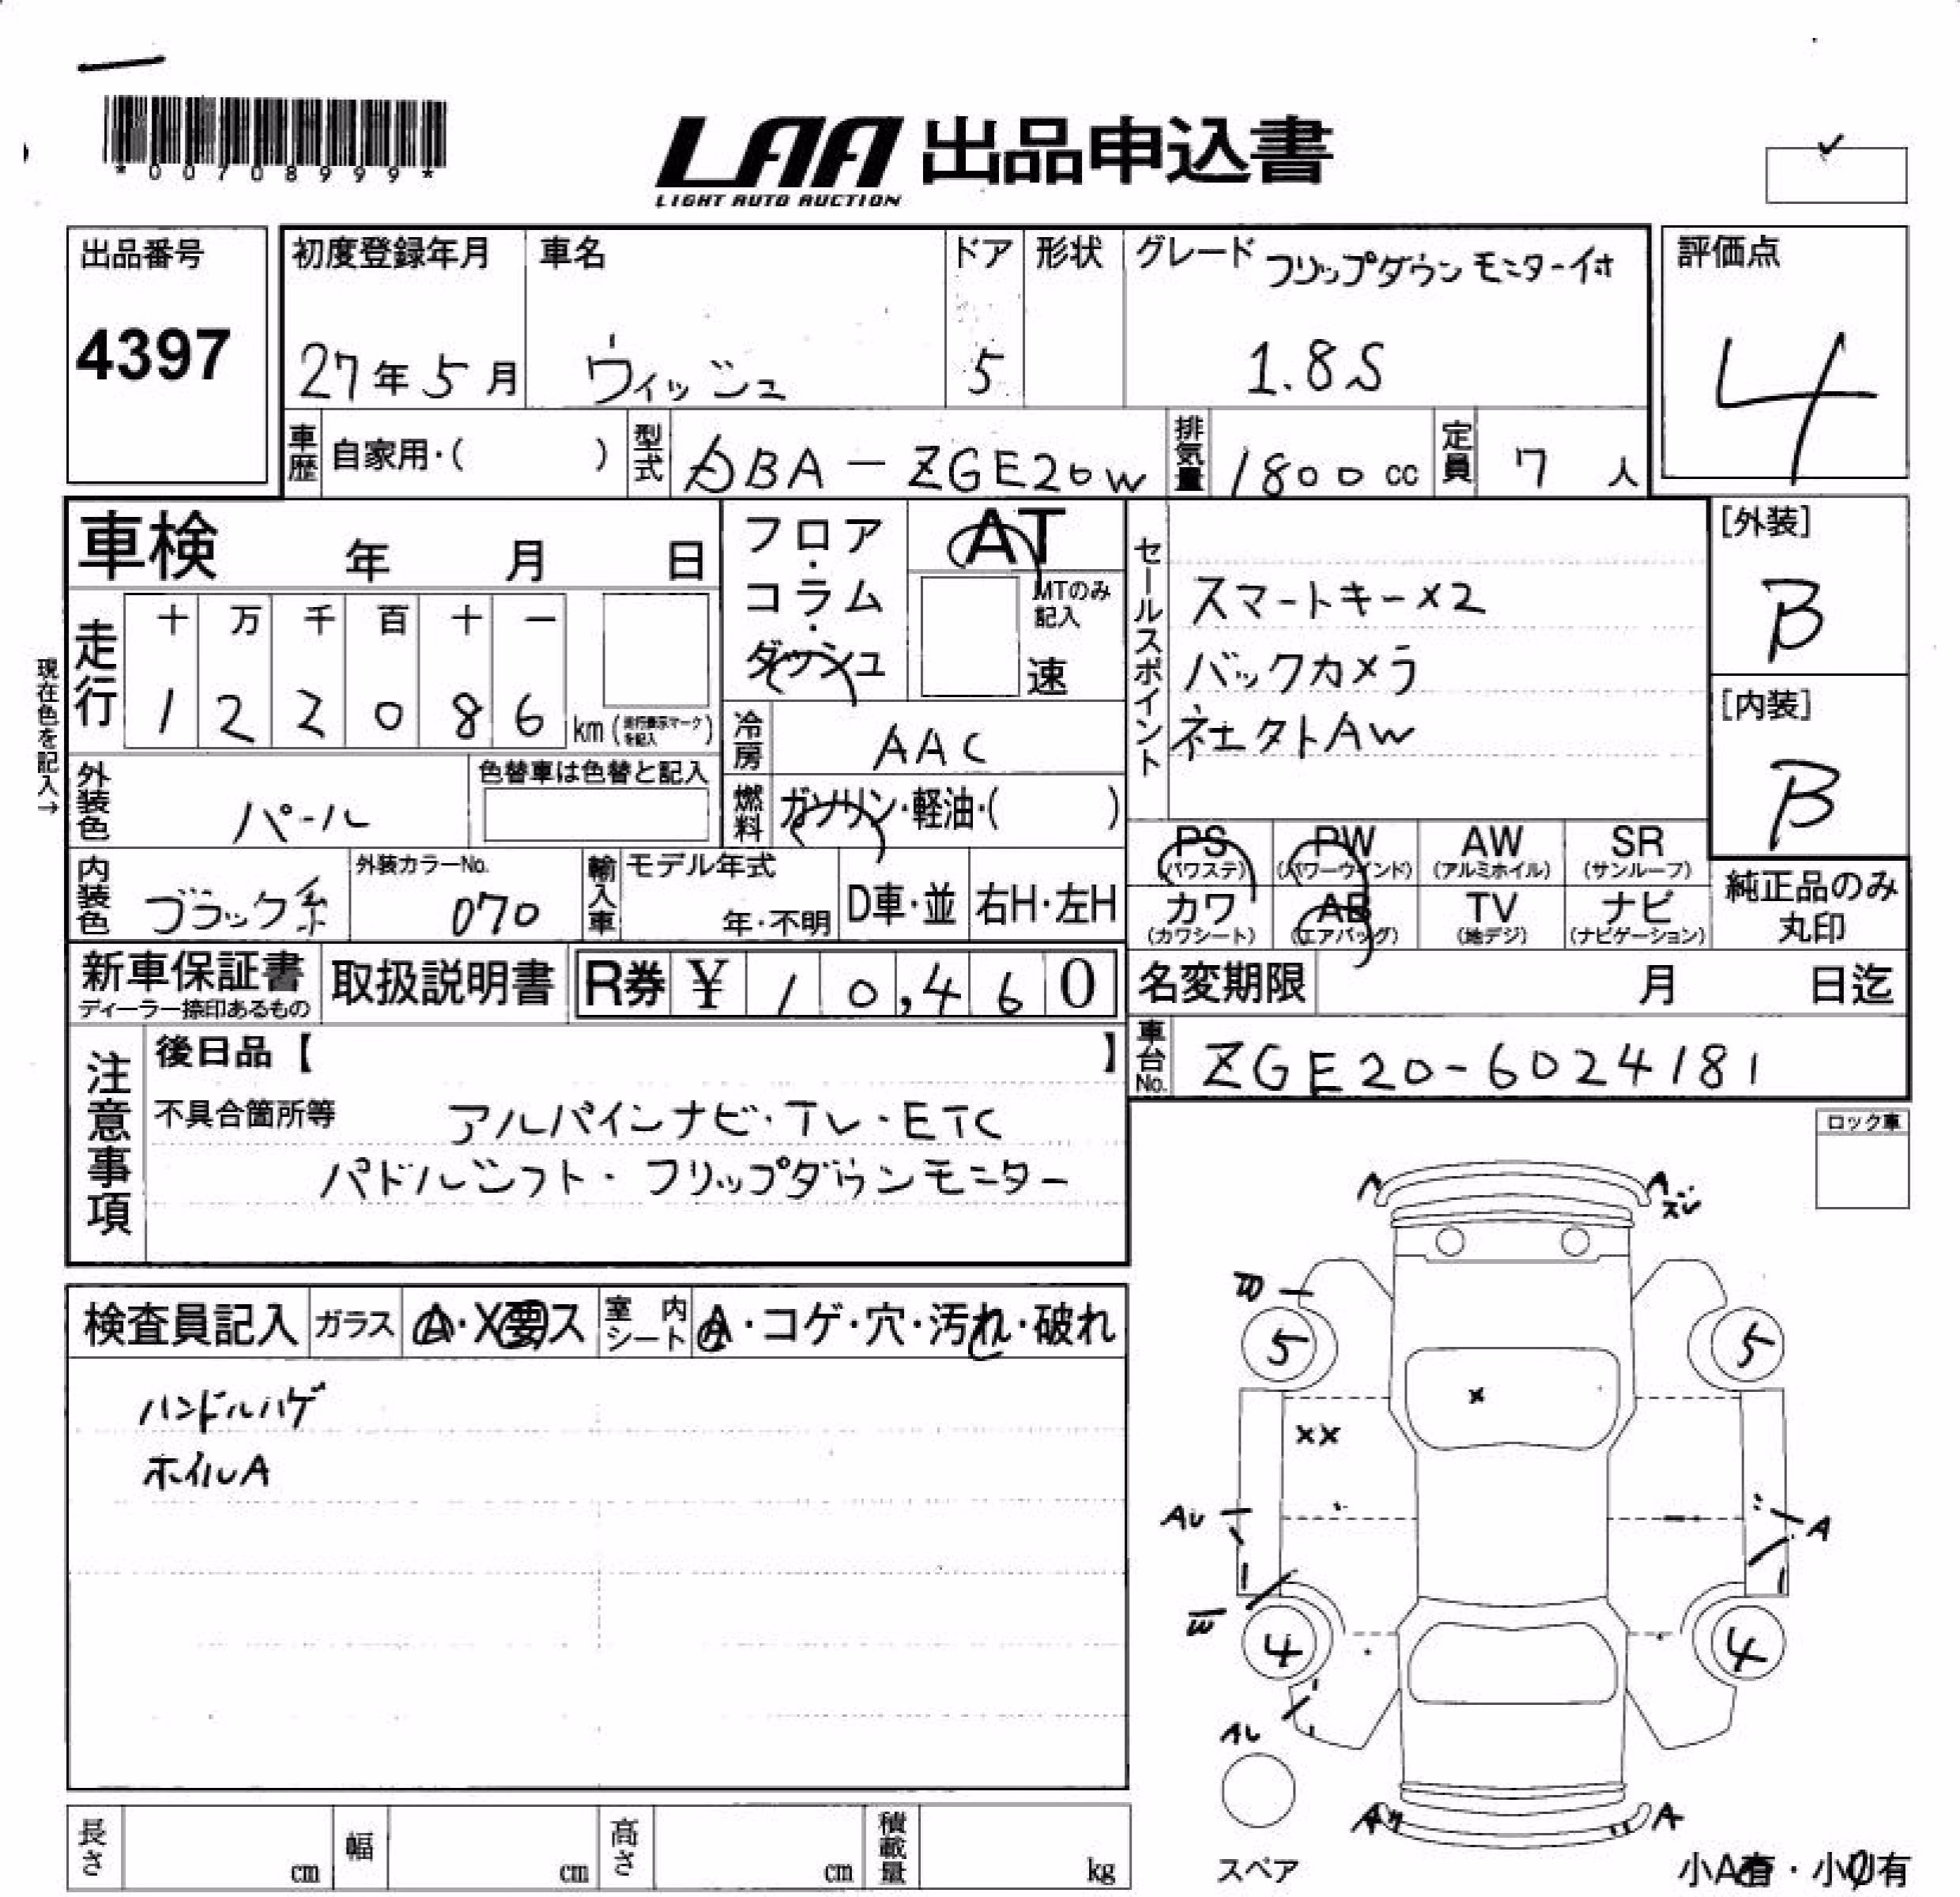 *00708999*
LAA 出品申込書
LIGHT AUTO AUCTION
出品番号
4397
初度登録年月
27年5月
車名
ウィッシュ
ドア
5
形状
グレード フリップダウンモニター付
1.8S
評価点
4
車歴 自家用・( )
型式 DBA-ZGE20W
排気量 1800cc
定員 7人
車検 年 月 日
フロア・コラム・ダッシュ
AT
MTのみ記入
速
現在色を記入→
走行
十 万 千 百 十 一
1 2 2 0 8 6 km(走行表示マークを記入)
冷房 AAC
燃料 ガソリン・軽油・( )
外装色 パール
色替車は色替と記入
内装色 ブラック系
外装カラーNo.
070
輸入車 モデル年式
年・不明
D車・並
右H・左H
セールスポイント
スマートキー×2
バックカメラ
社外AW
[外装]
B
[内装]
B
PS (パワステ)
PW (パワーウインド)
AW (アルミホイル)
SR (サンルーフ)
カワ (カワシート)
AB (エアバッグ)
TV (地デジ)
ナビ (ナビゲーション)
純正品のみ丸印
新車保証書
ディーラー捺印あるもの
取扱説明書
R券 ¥ 10,460
名変期限 月 日迄
車台No. ZGE20-6024181
注意事項
後日品【 】
不具合箇所等 アルパインナビ・TV・ETC
パドルシフト・フリップダウンモニター
ロック車
検査員記入
ガラス A・X要ス
室内シート A・コゲ・穴・汚れ・破れ
ハンドルハゲ
ホイルA
A
A
スジ
W
5
5
×
××
AU
A
W
4
4
AU
A
A
スペア
小A有・小U有
長さ cm
幅 cm
高さ cm
積載量 kg